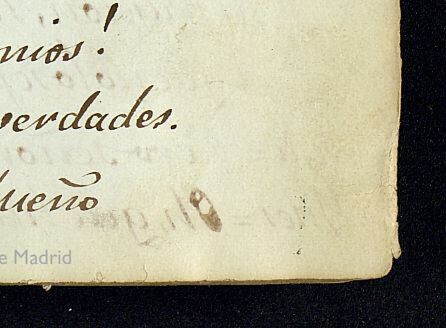 nios!
verdades.
ueño
e Madrid